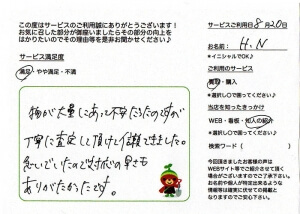 この度はサービスのご利用誠にありがとうございます!
お気に召した部分が御座いましたらその部分の向上を
はかりたいのでその理由等を是非お聞かせください♪
サービス満足度
満足・やや満足・不満
物が大量にあって不安だったのですが
丁寧に査定して頂けて信頼できました。
急いでいたので対応の早さも
ありがたかったです。
サービスご利用日8月20日
お名前: H.N
*イニシャルでOK♪
ご利用のサービス
買取・購入
*選択し〇で囲ってください♪
当店を知ったきっかけ
WEB・看板・知人の紹介
*選択し〇で囲ってください♪
検索ワード( )
今回頂きましたお客様の声は
WEBサイト等でご紹介させて頂く
場合がございますのでご了承下さい。
お名前や個人が特定出来るような
情報等は確実に伏せての掲載と
なりますのでご安心下さい。